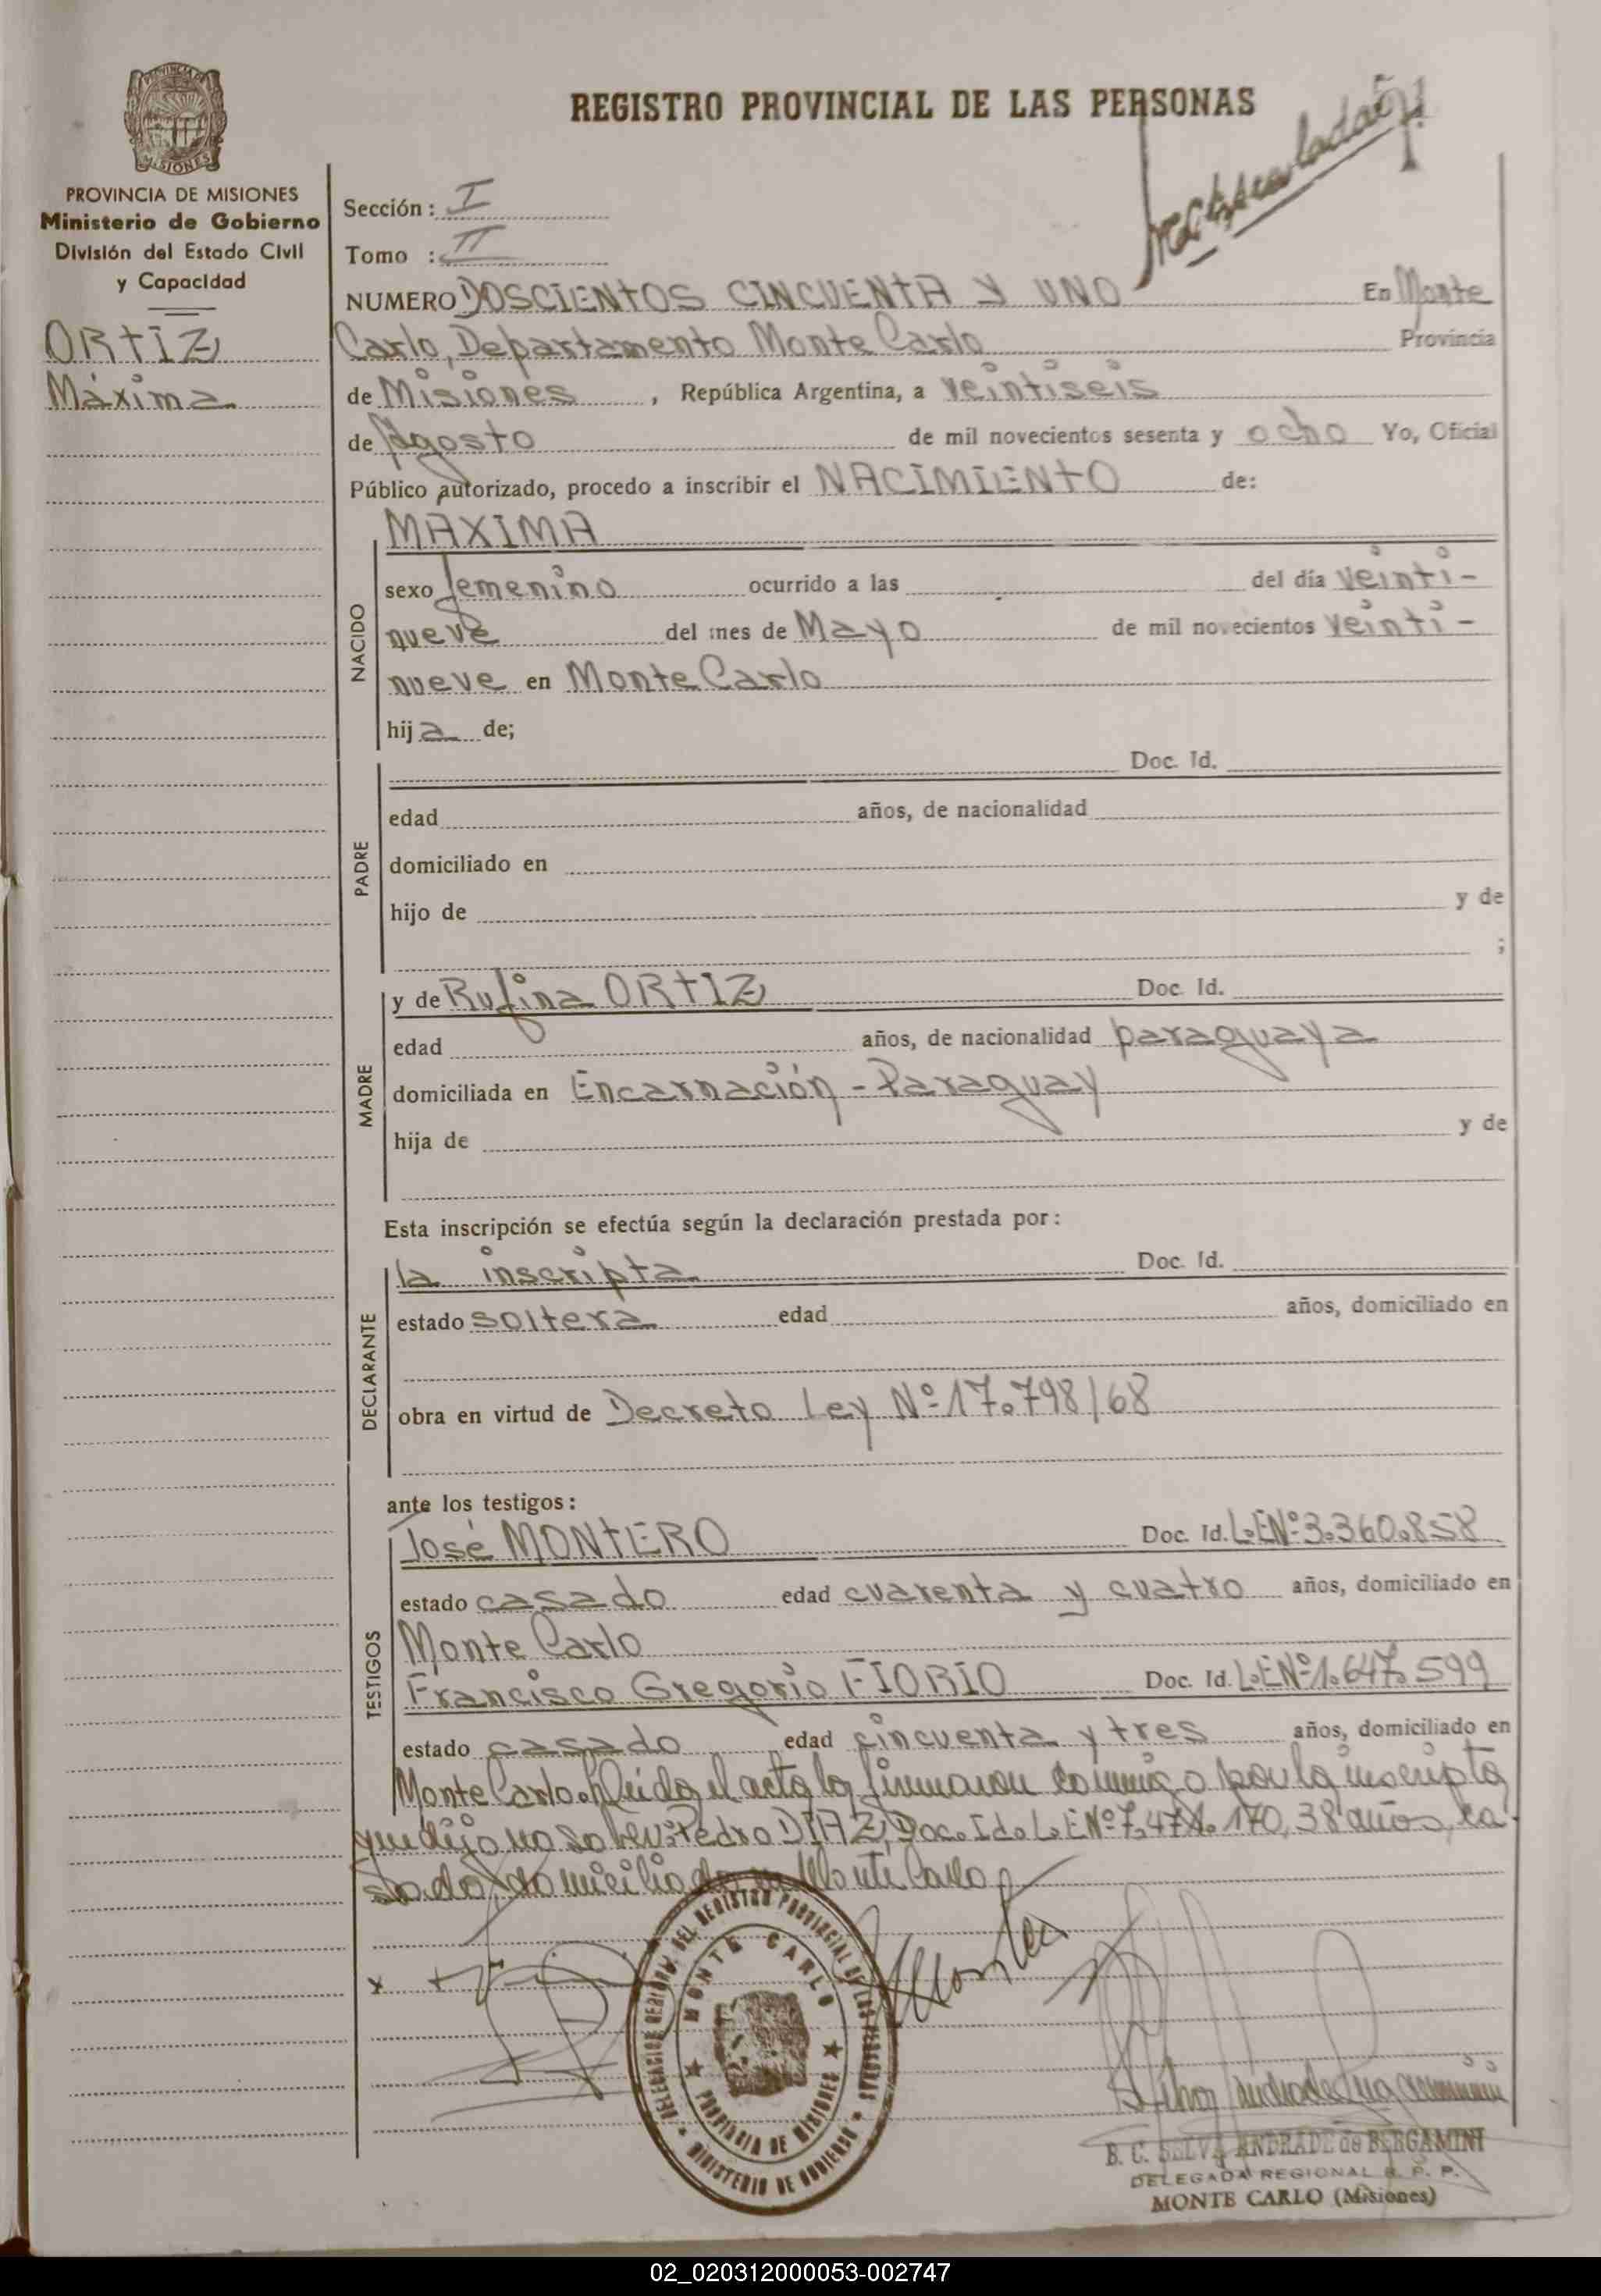 REGISTRO PROVINCIAL DE LAS PERSONAS
PROVINCIA DE MISIONES
Ministerio de Gobierno
División del Estado Civil
y Capacidad
ORTIZ
Máxima
Sección: I
Tomo : II
NUMERO DOSCIENTOS CINCUENTA Y UNO En Monte
Carlo, Departamento Monte Carlo Provincia
de Misiones, República Argentina, a veintiseis
de Agosto de mil novecientos sesenta y ocho Yo, Oficial
Público autorizado, procedo a inscribir el NACIMIENTO de:
NACIDO
MAXIMA
sexo femenino ocurrido a las del día veinti-
nueve del mes de Mayo de mil novecientos veinti-
nueve en Monte Carlo
hija de;
PADRE
Doc. Id.
edad años, de nacionalidad
domiciliado en
hijo de y de
;
MADRE
y de Rufina ORTIZ Doc. Id.
edad años, de nacionalidad paraguaya
domiciliada en Encarnación - Paraguay
hija de y de
Esta inscripción se efectúa según la declaración prestada por:
DECLARANTE
la inscripta Doc. Id.
estado soltera edad años, domiciliado en
obra en virtud de Decreto Ley Nº 17.798/68
ante los testigos:
TESTIGOS
José MONTERO Doc. Id. L.E.Nº 3.360.858
estado casado edad cuarenta y cuatro años, domiciliado en
Monte Carlo
Francisco Gregorio FIORIO Doc. Id. L.E.Nº 1.647.599
estado casado edad cincuenta y tres años, domiciliado en
Monte Carlo. Leida el acta la firmaron conmigo por la inscripta
que dijo no saber: Pedro DIAZ, Doc. Id. L.E.Nº 7.474.170, 38 años, ca
sado, domiciliado en Monte Carlo
DELEGACION REGIONAL DEL REGISTRO PROVINCIAL DE LAS PERSONAS
MONTE CARLO
PROVINCIA DE MISIONES
MINISTERIO DE GOBIERNO
B. C. SELVA ANDRADE de BERGAMINI
DELEGADA REGIONAL R. P. P.
MONTE CARLO (Misiones)
02_020312000053-002747